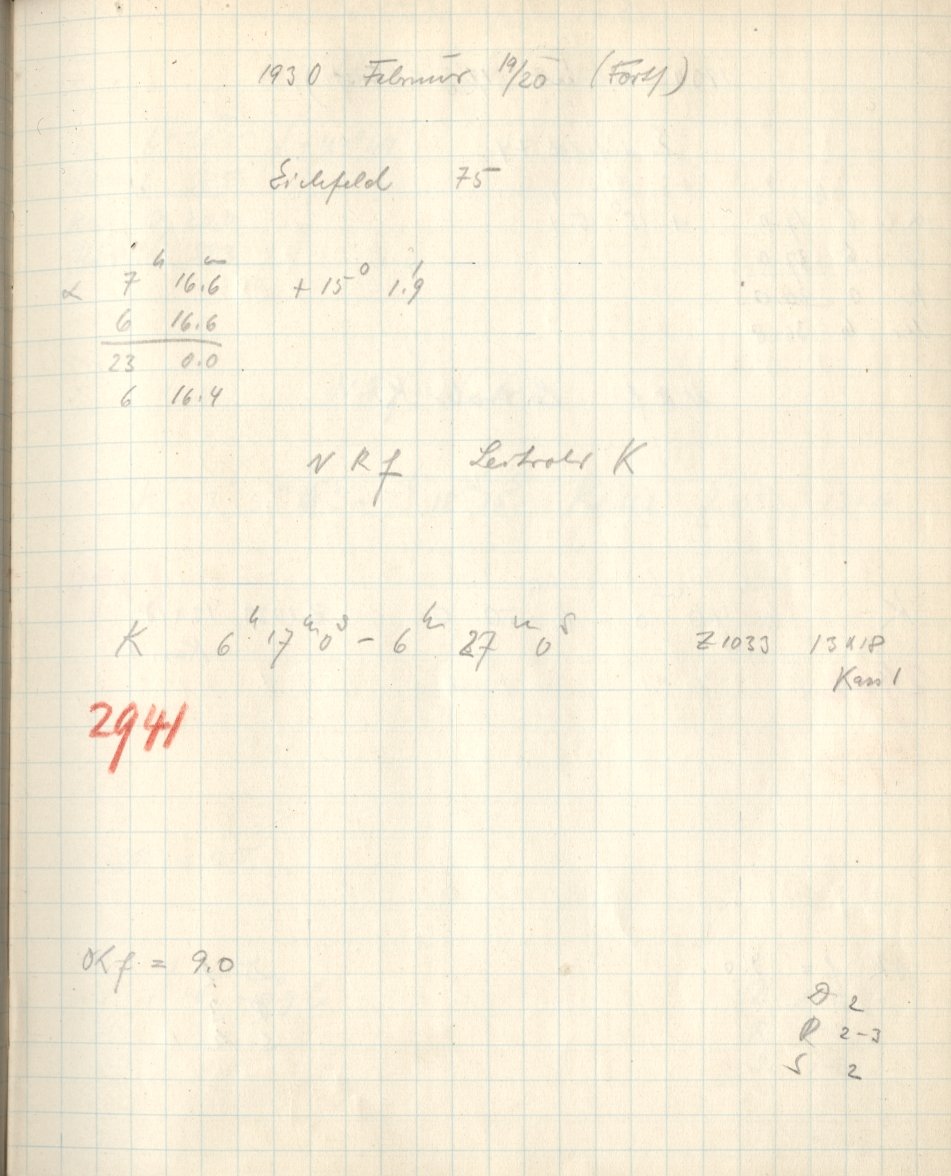 1930 Februar 19/20 (Forts)
Eichfeld 75
α 7ʰ 16.6ᵐ +15° 1.9'
6 16.6
23 0.0
6 16.4
N R f Leitrohr K
K 6ʰ 17ᵐ 0ˢ - 6ʰ 27ᵐ 0ˢ Z 1033 13x18
Kass 1
2941
Kf = 9.0
D 2
R 2-3
S 2